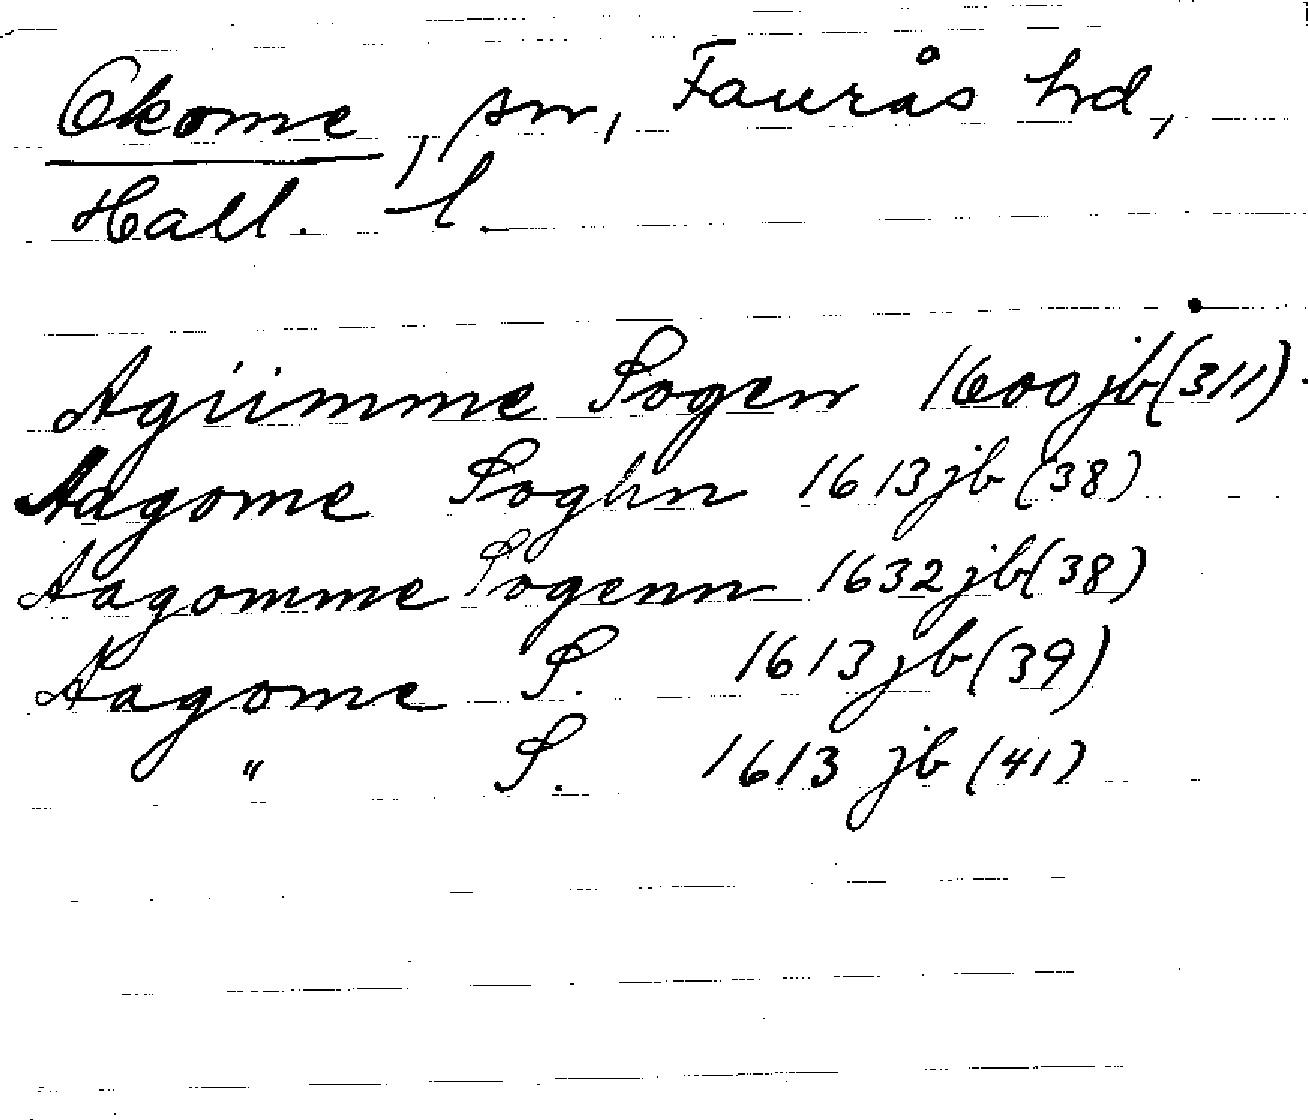 Okome, sn, Faurås hd,
Hall. l.
Agiimme Sogen 1600 jb (311).
Aagome Soghn 1613 jb (38)
Aagomme Sogenn 1632 jb (38)
Aagome S. 1613 jb (39)
" S. 1613 jb (41)